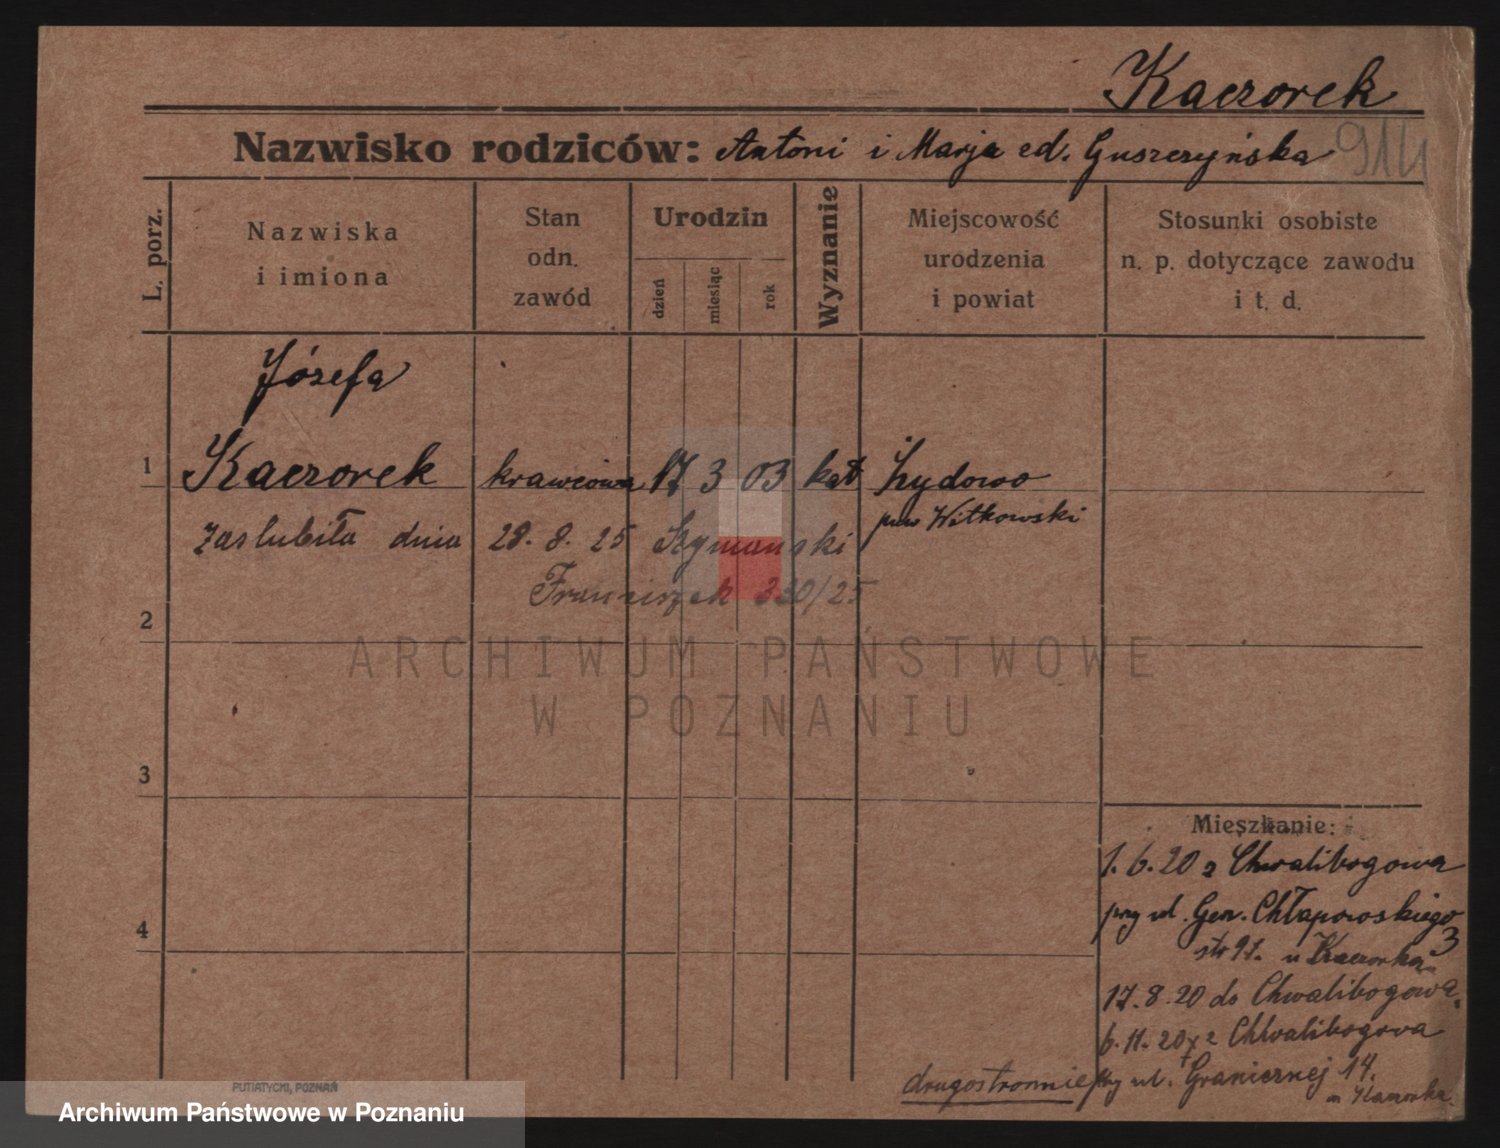 Kaczorek
Nazwisko rodziców: Antoni i Marja Guszczyńska 914
L. porz.
Nazwiska
i imiona
Stan
odn.
zawód
Urodzin
dzień
miesiąc
rok
Wyznanie
Miejscowość
urodzenia
i powiat
Stosunki osobiste
n. p. dotyczące zawodu
i t. d.
Józefa
1 Kaczorek krawcowa 17 3 03 kat Żydowo
pow Witkowski
zaslubiła dnia 28. 8. 25 Szymański
Franciszek 330/25
2
ARCHIWUM PAŃSTWOWE
W POZNANIU
3
Mieszkanie:
1. 6. 20 z Chwalibogowa
przy ul. Gen. Chłapowskiego 3
u Kaczorka
4
17. 8. 20 do Chwalibogowa.
6. 11. 20 z Chwalibogowa
drugostronnie przy ul. Granicznej 14.
u Kaczorka.
PUTIATYCKI, POZNAŃ
Archiwum Państwowe w Poznaniu